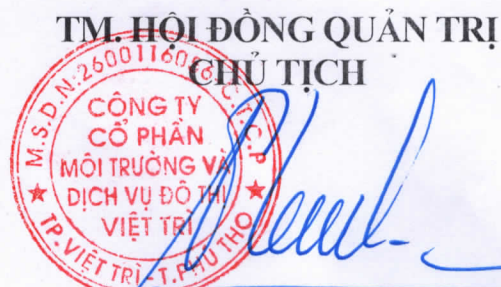 TM. HỘI ĐỒNG QUẢN TRỊ
CHỦ TỊCH
M.S.D.N:2600116086-C.T.C.P
CÔNG TY
CỔ PHẦN
MÔI TRƯỜNG VÀ
DỊCH VỤ ĐÔ THỊ
VIỆT TRÌ
TP. VIỆT TRÌ - T. PHÚ THỌ